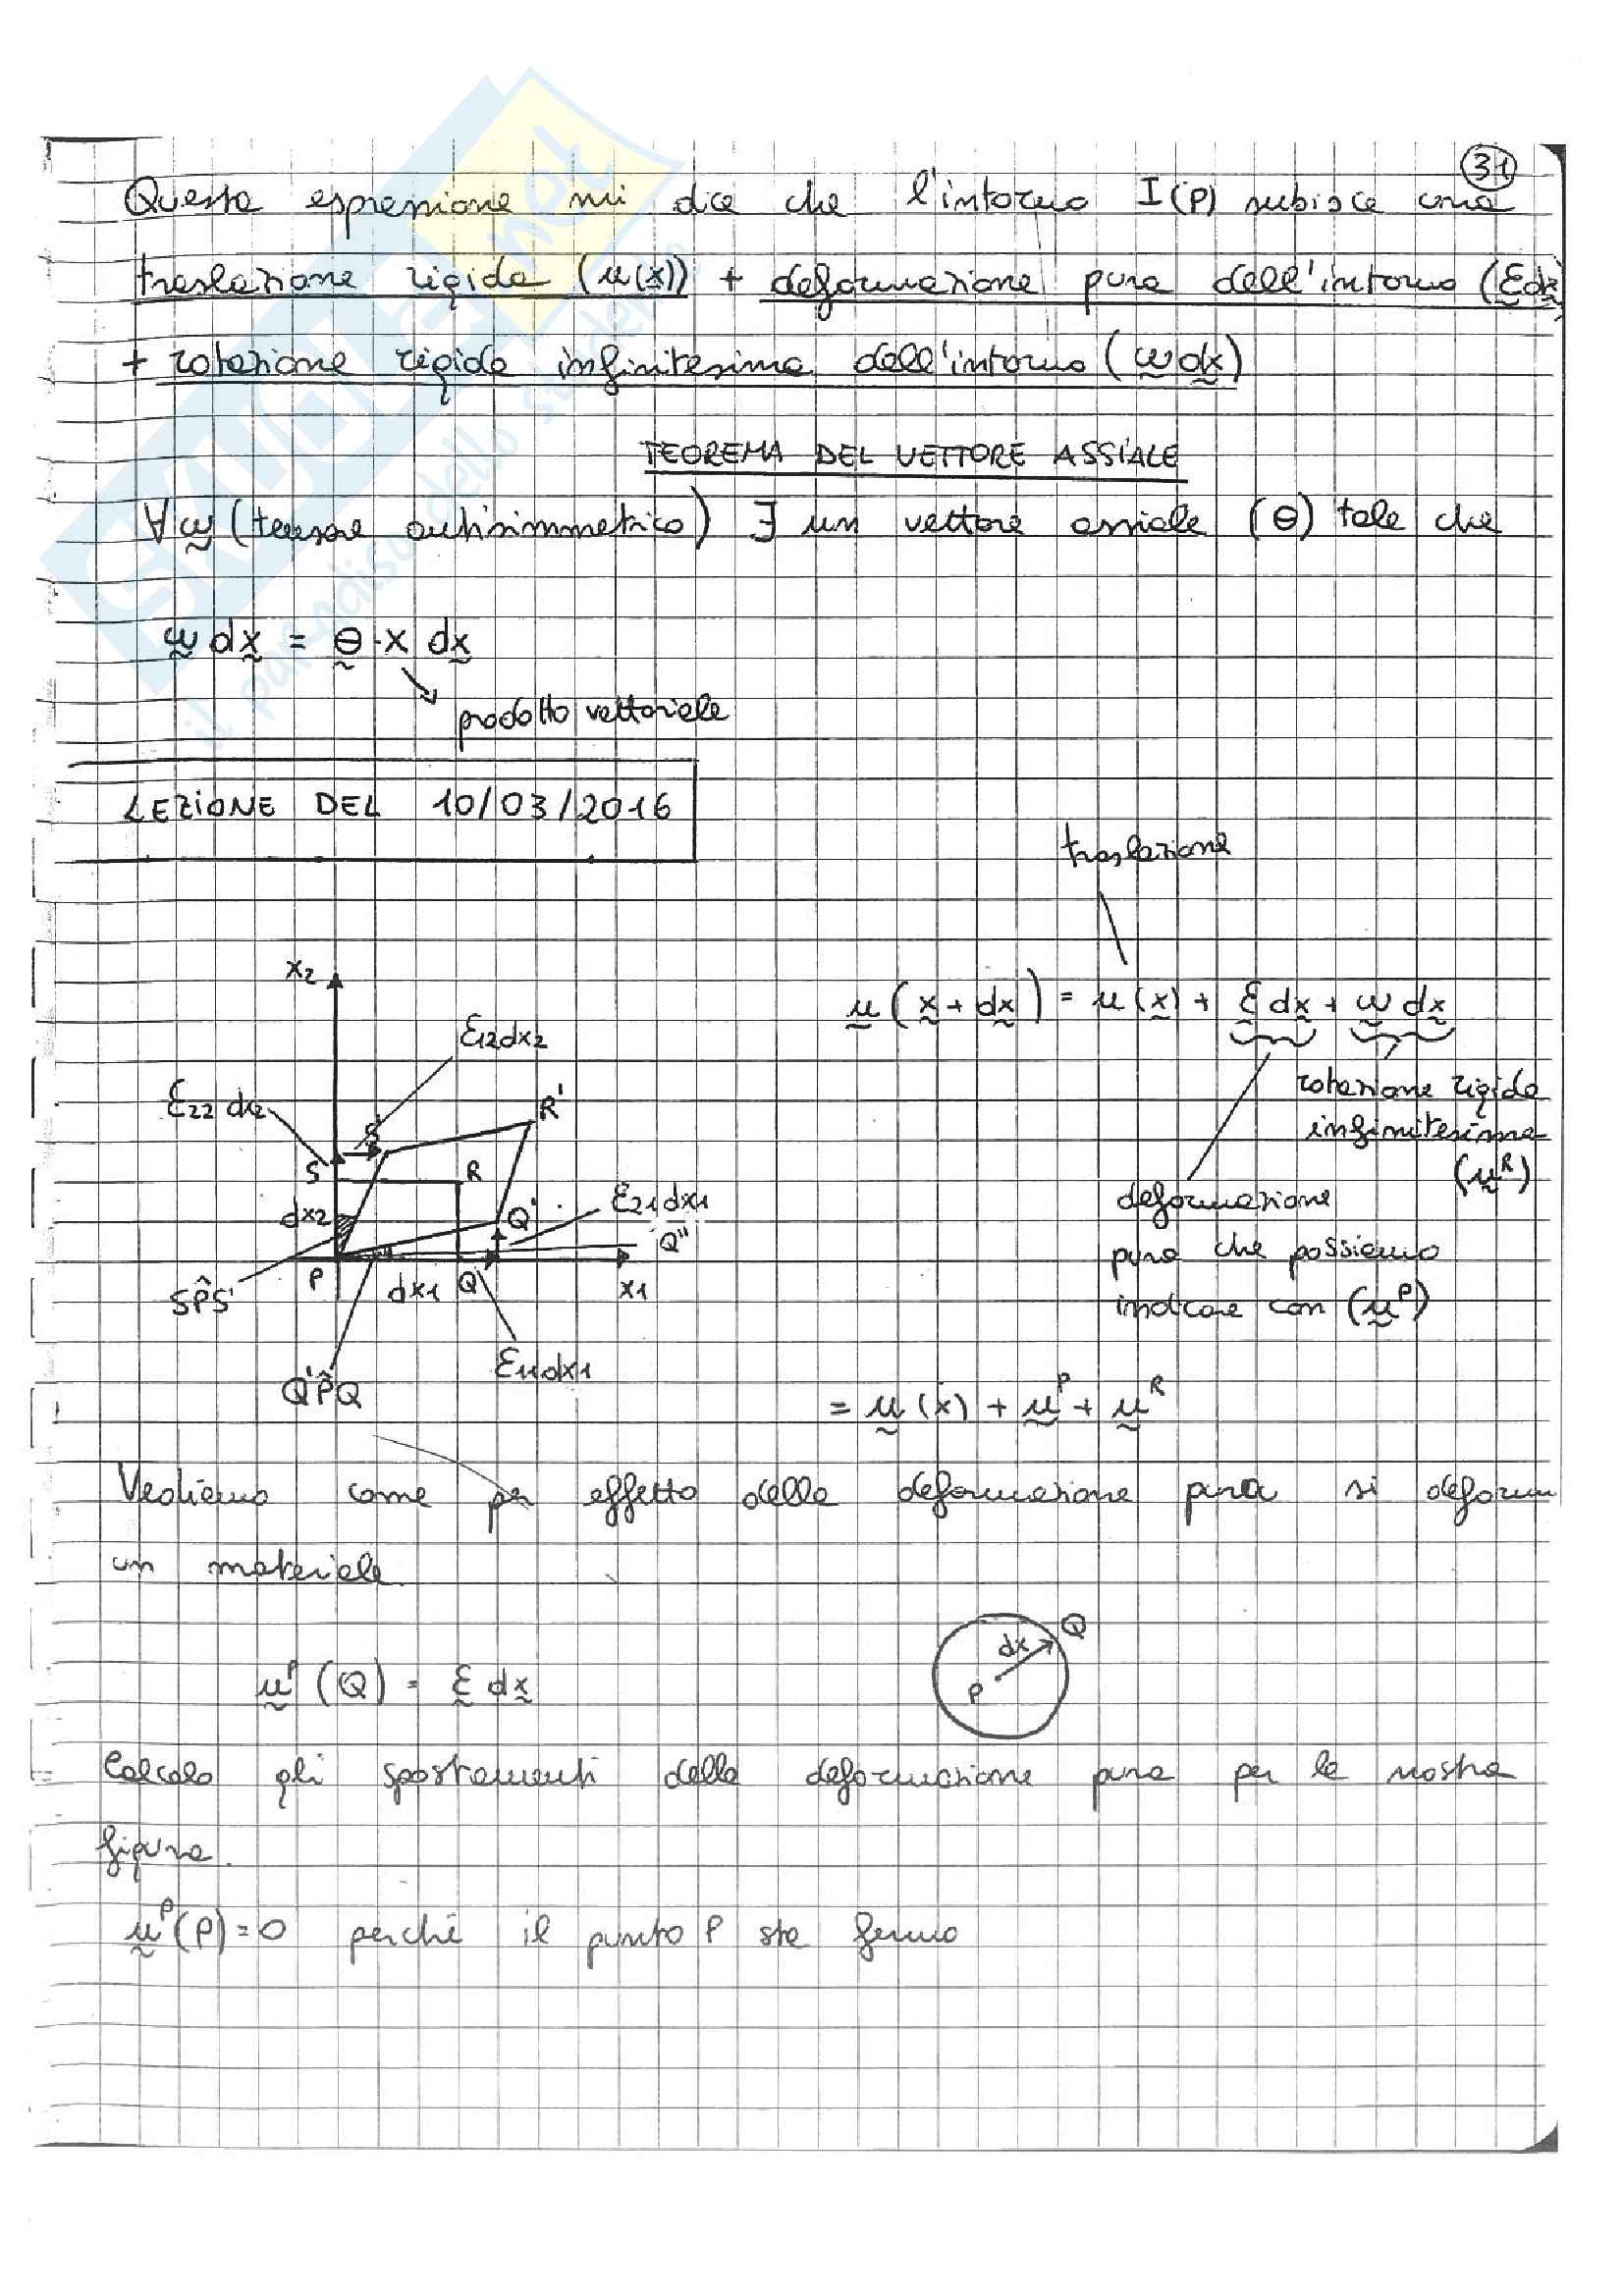 31
Questa espressione mi dice che l'intorno I(P) subisce una
traslazione rigida (u(x)) + deformazione pura dell'intorno (εdx)
+ rotazione rigida infinitesima dell'intorno (ω dx)
TEOREMA DEL VETTORE ASSIALE
∀ω (tensore antisimmetrico) ∃ un vettore assiale (θ) tale che
ω dx = θ · x dx
prodotto vettoriale
LEZIONE DEL 10/03/2016
traslazione
x2
u(x + dx) = u(x) + ε dx + ω dx
ε12dx2
ε22 dx2
S'
R'
rotazione rigida
infinitesima
(uR)
S
R
dx2
Q'
ε21dx1
Q''
deformazione
pura che possiamo
indicare con (uP)
P
dx1
Q
x1
SP̂S'
ε11dx1
Q'P̂Q
= u(x) + uP + uR
Vediamo come per effetto della deformazione pura si deform
un materiale.
uP (Q) = ε dx
dx
Q
P
Calcolo gli spostamenti della deformazione pura per la nostra
figura.
uP(P)=0 perché il punto P sta fermo
SKUOLA.net
il paradiso dello studente